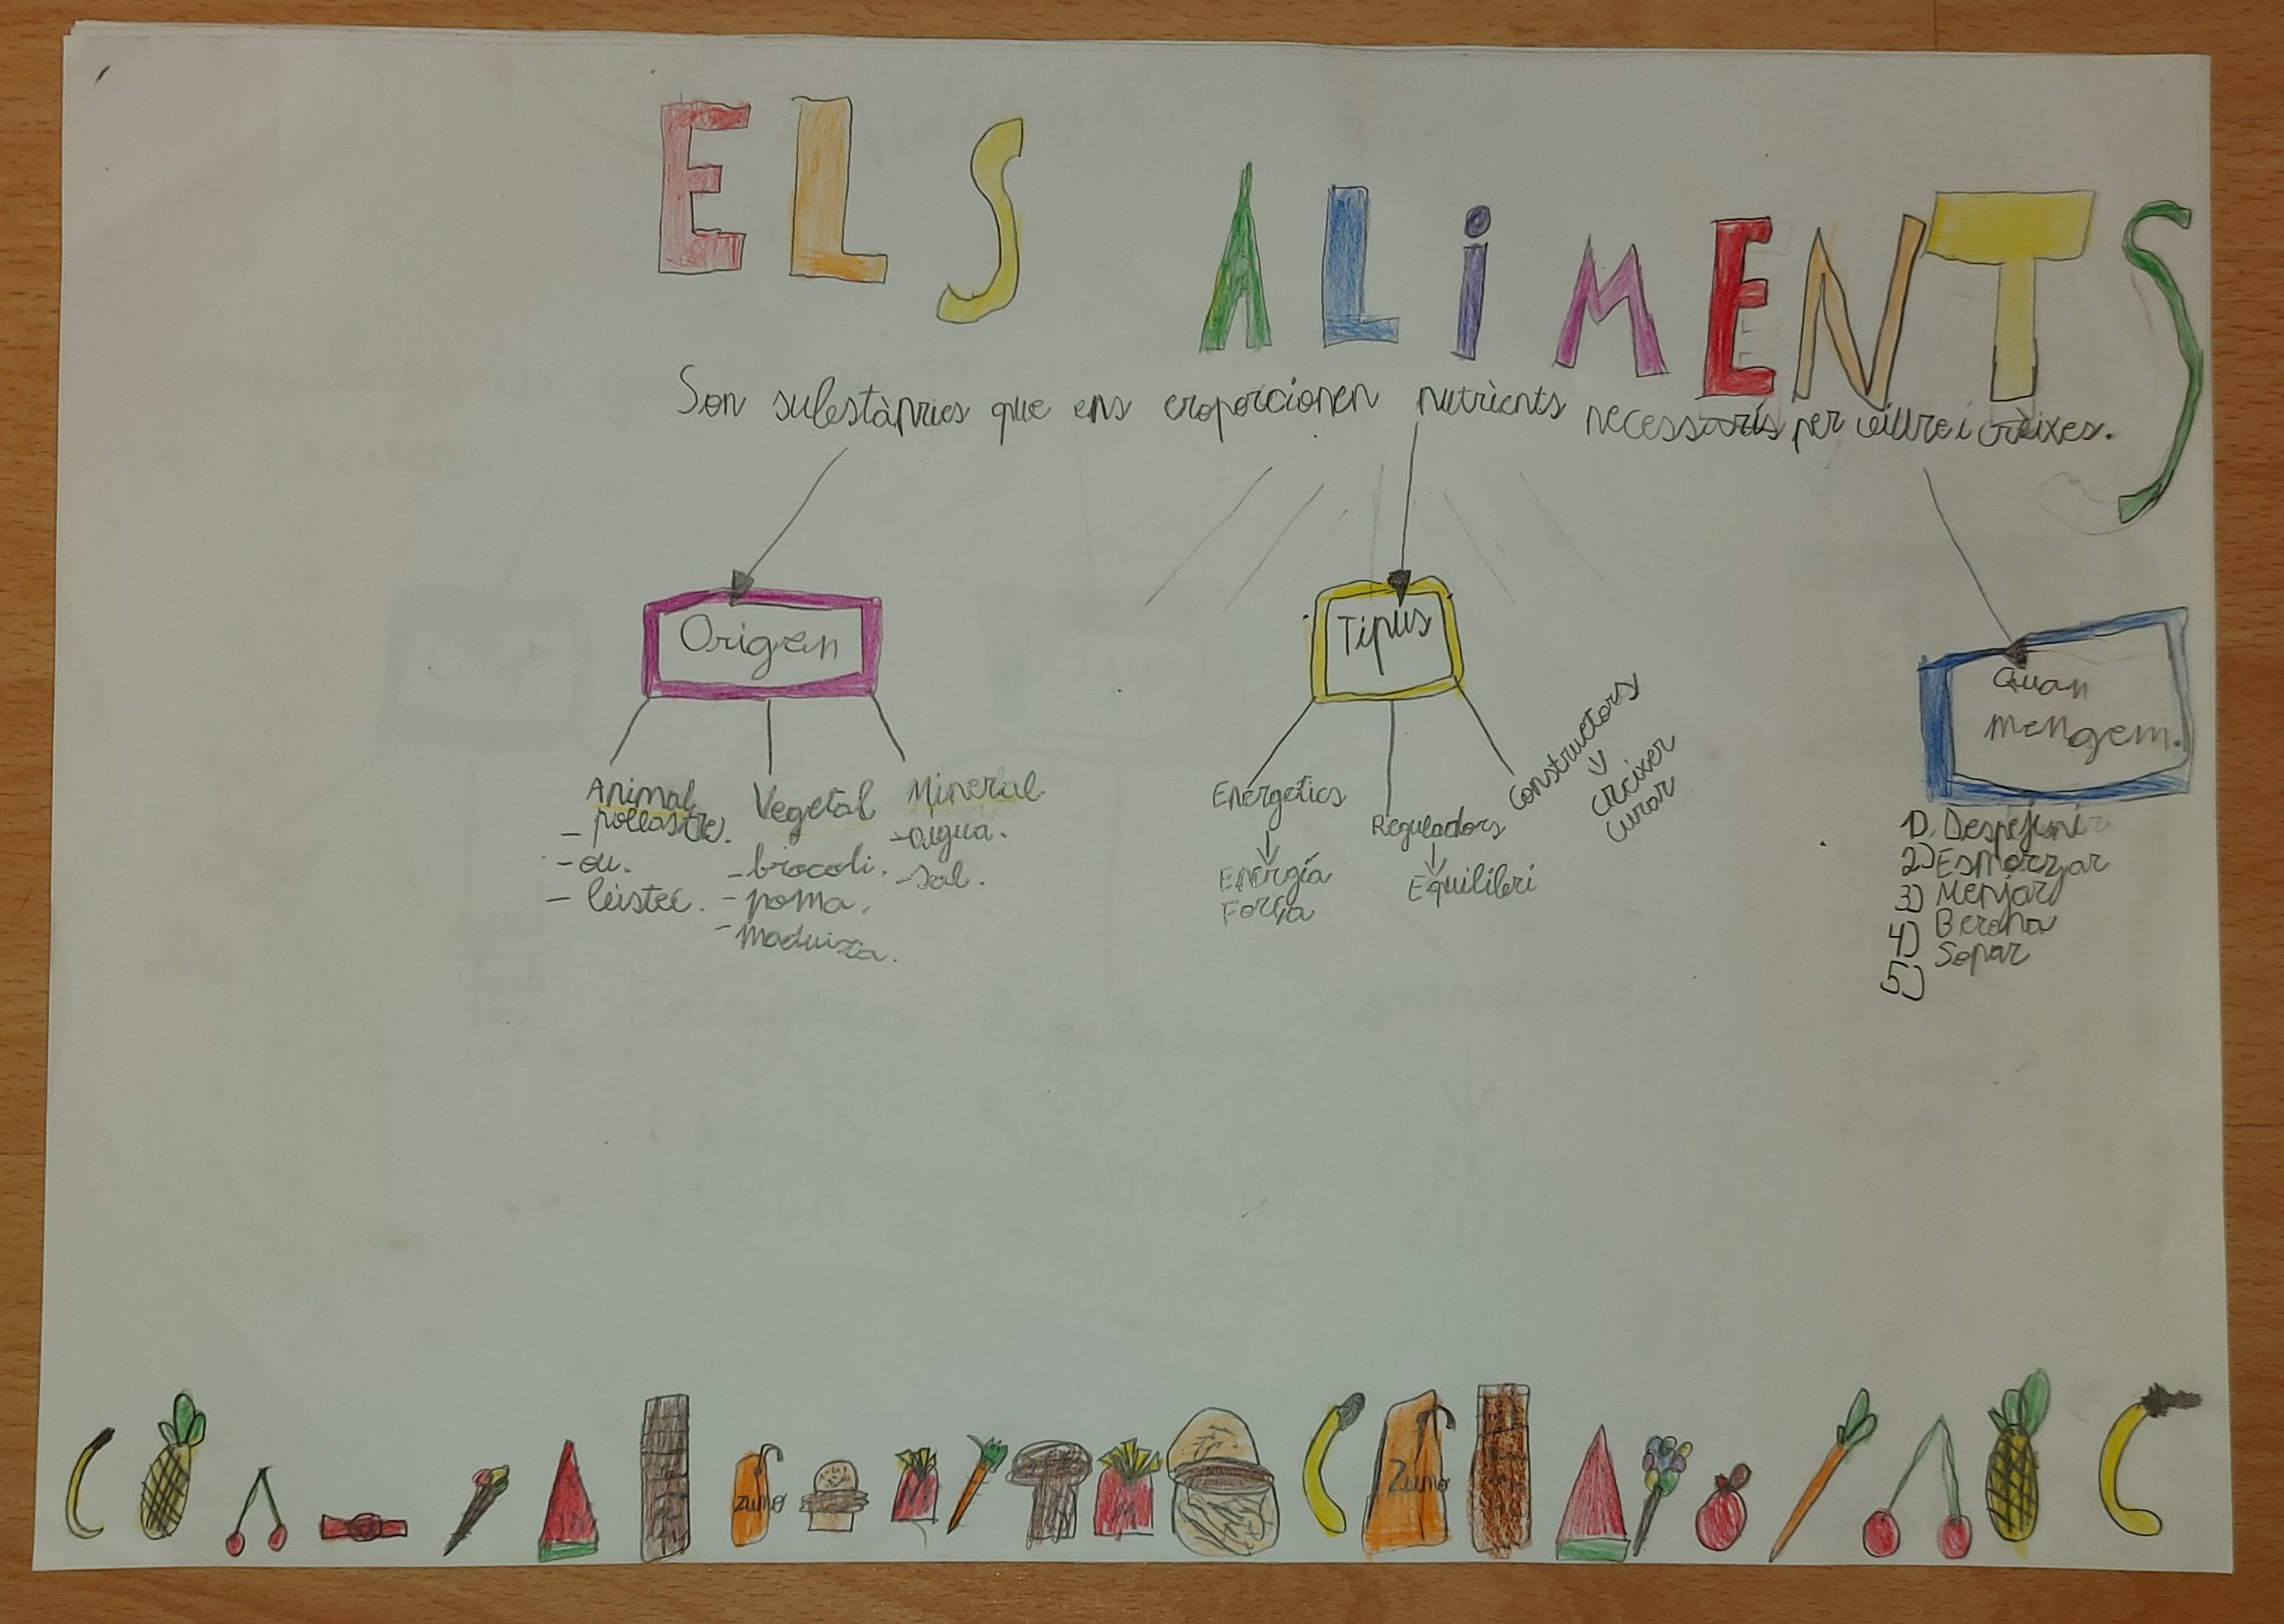 ELS ALiMENTS
Son substàncies que ens proporcionen nutrients necessaris per viure i créixes.
Origen
Animal
- pollastre.
- ou.
- bistec.
Vegetal
- brocoli.
- poma.
- maduixa.
Mineral
- aigua.
- sal.
Tipus
Energetics
Energía
Força
Reguladors
Equilibri
Constructors
créixer
curar
Quan
mengem.
1) Despejuni
2) Esmorzar
3) Menjar
4) Berena
5) Sopar
zumo
Zumo